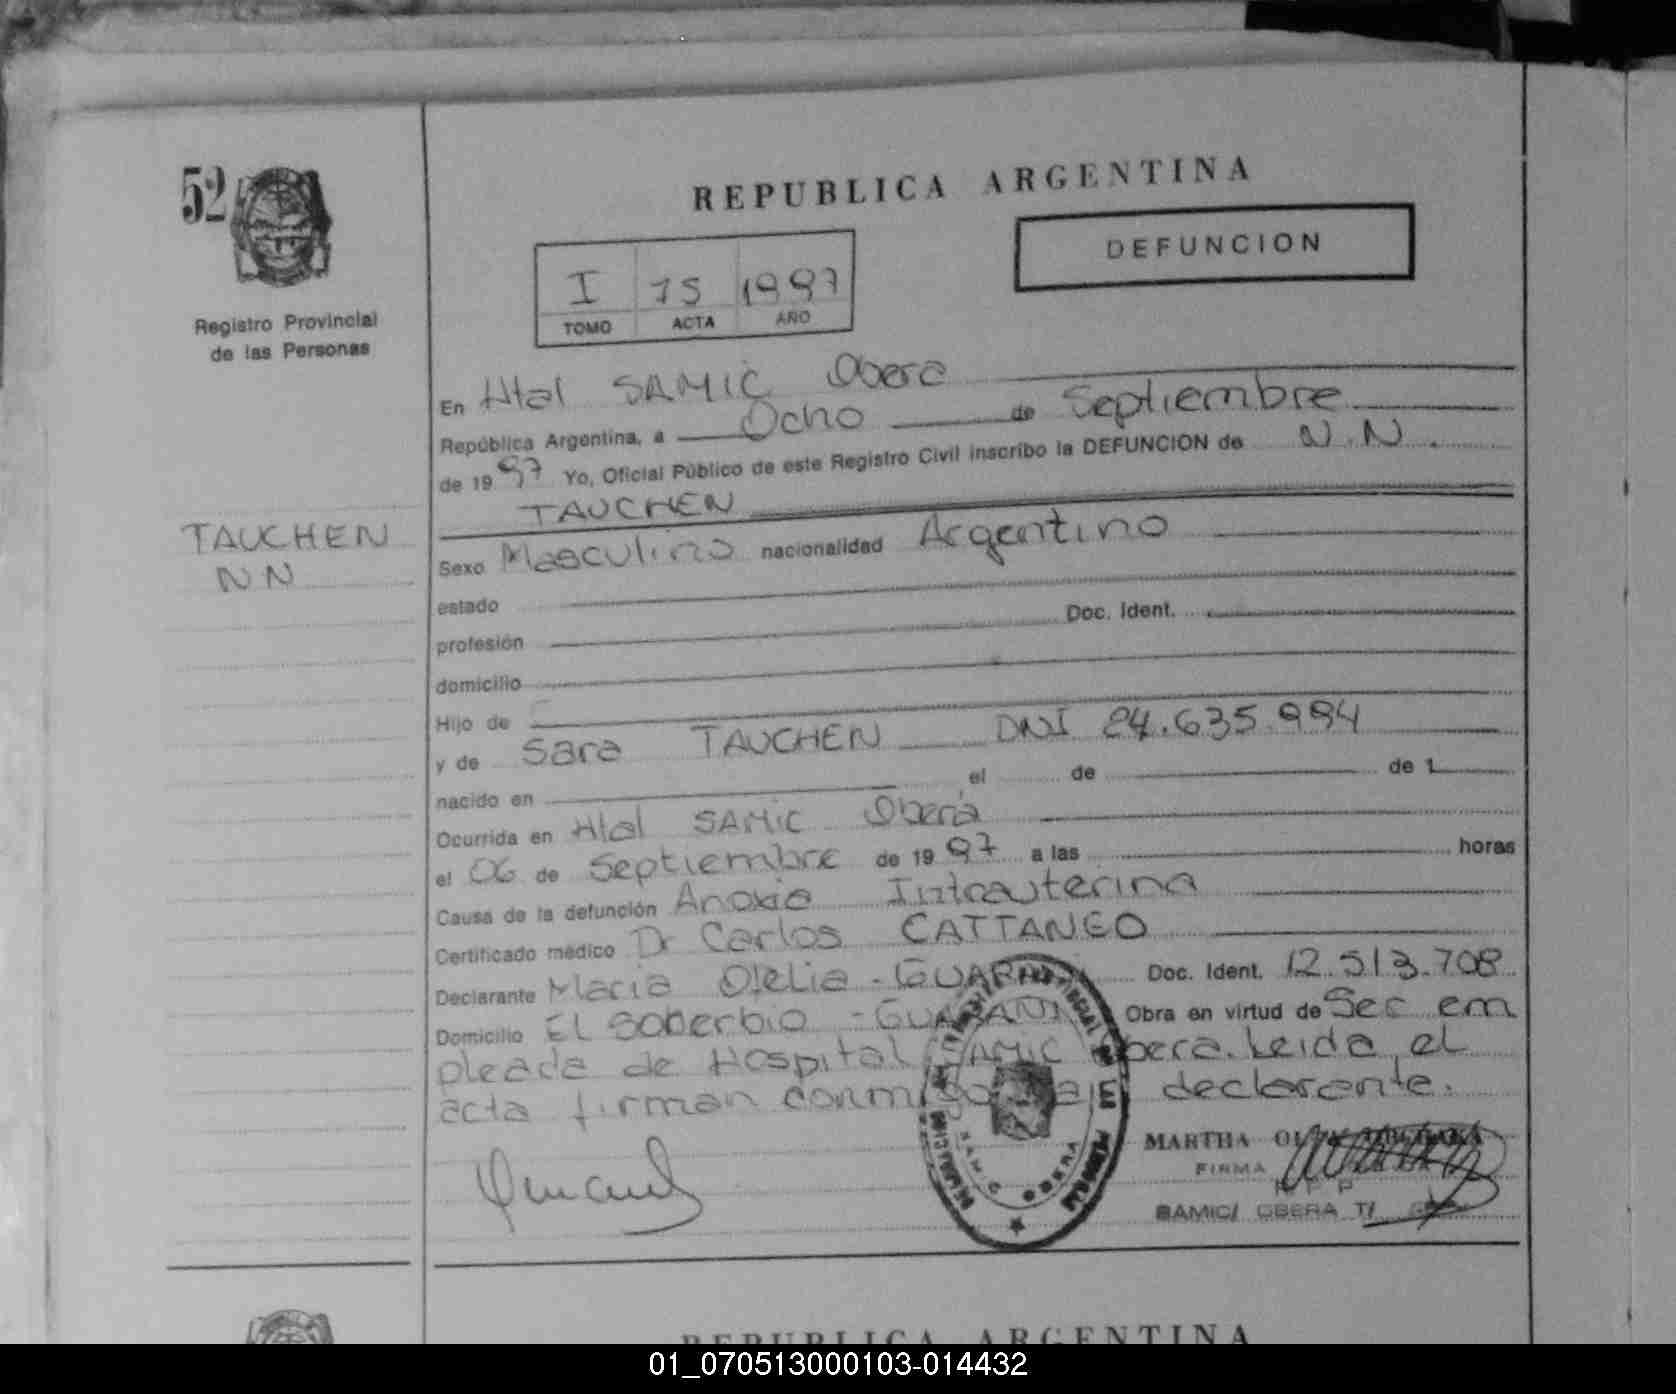 52
REPUBLICA ARGENTINA
DEFUNCION
I 75 1997
TOMO ACTA AÑO
Registro Provincial
de las Personas
En Htal SAMIC Obera
República Argentina, a Ocho de Septiembre
de 1997 Yo, Oficial Público de este Registro Civil inscribo la DEFUNCION de N.N.
TAUCHEN
TAUCHEN
NN
Sexo Masculino nacionalidad Argentino
estado
profesión Doc. Ident.
domicilio
Hijo de
y de Sara TAUCHEN DNI 24.635.994
nacido en el de de 1
Ocurrida en Htal SAMIC Oberá
el 06 de Septiembre de 1997 a las horas
Causa de la defunción Anoxia Intrauterina
Certificado médico Dr Carlos CATTANEO
Declarante Maria Ofelia - Doc. Ident. 12.513.708
Domicilio El Soberbio - GUARANI Obra en virtud de Ser em
pleada de Hospital SAMIC Obera. Leida el
acta firman conmigo la declarante.
MARTHA
FIRMA
SAMIC OBERA
SAMIC OBERA T/
REPUBLICA ARGENTINA
01_070513000103-014432